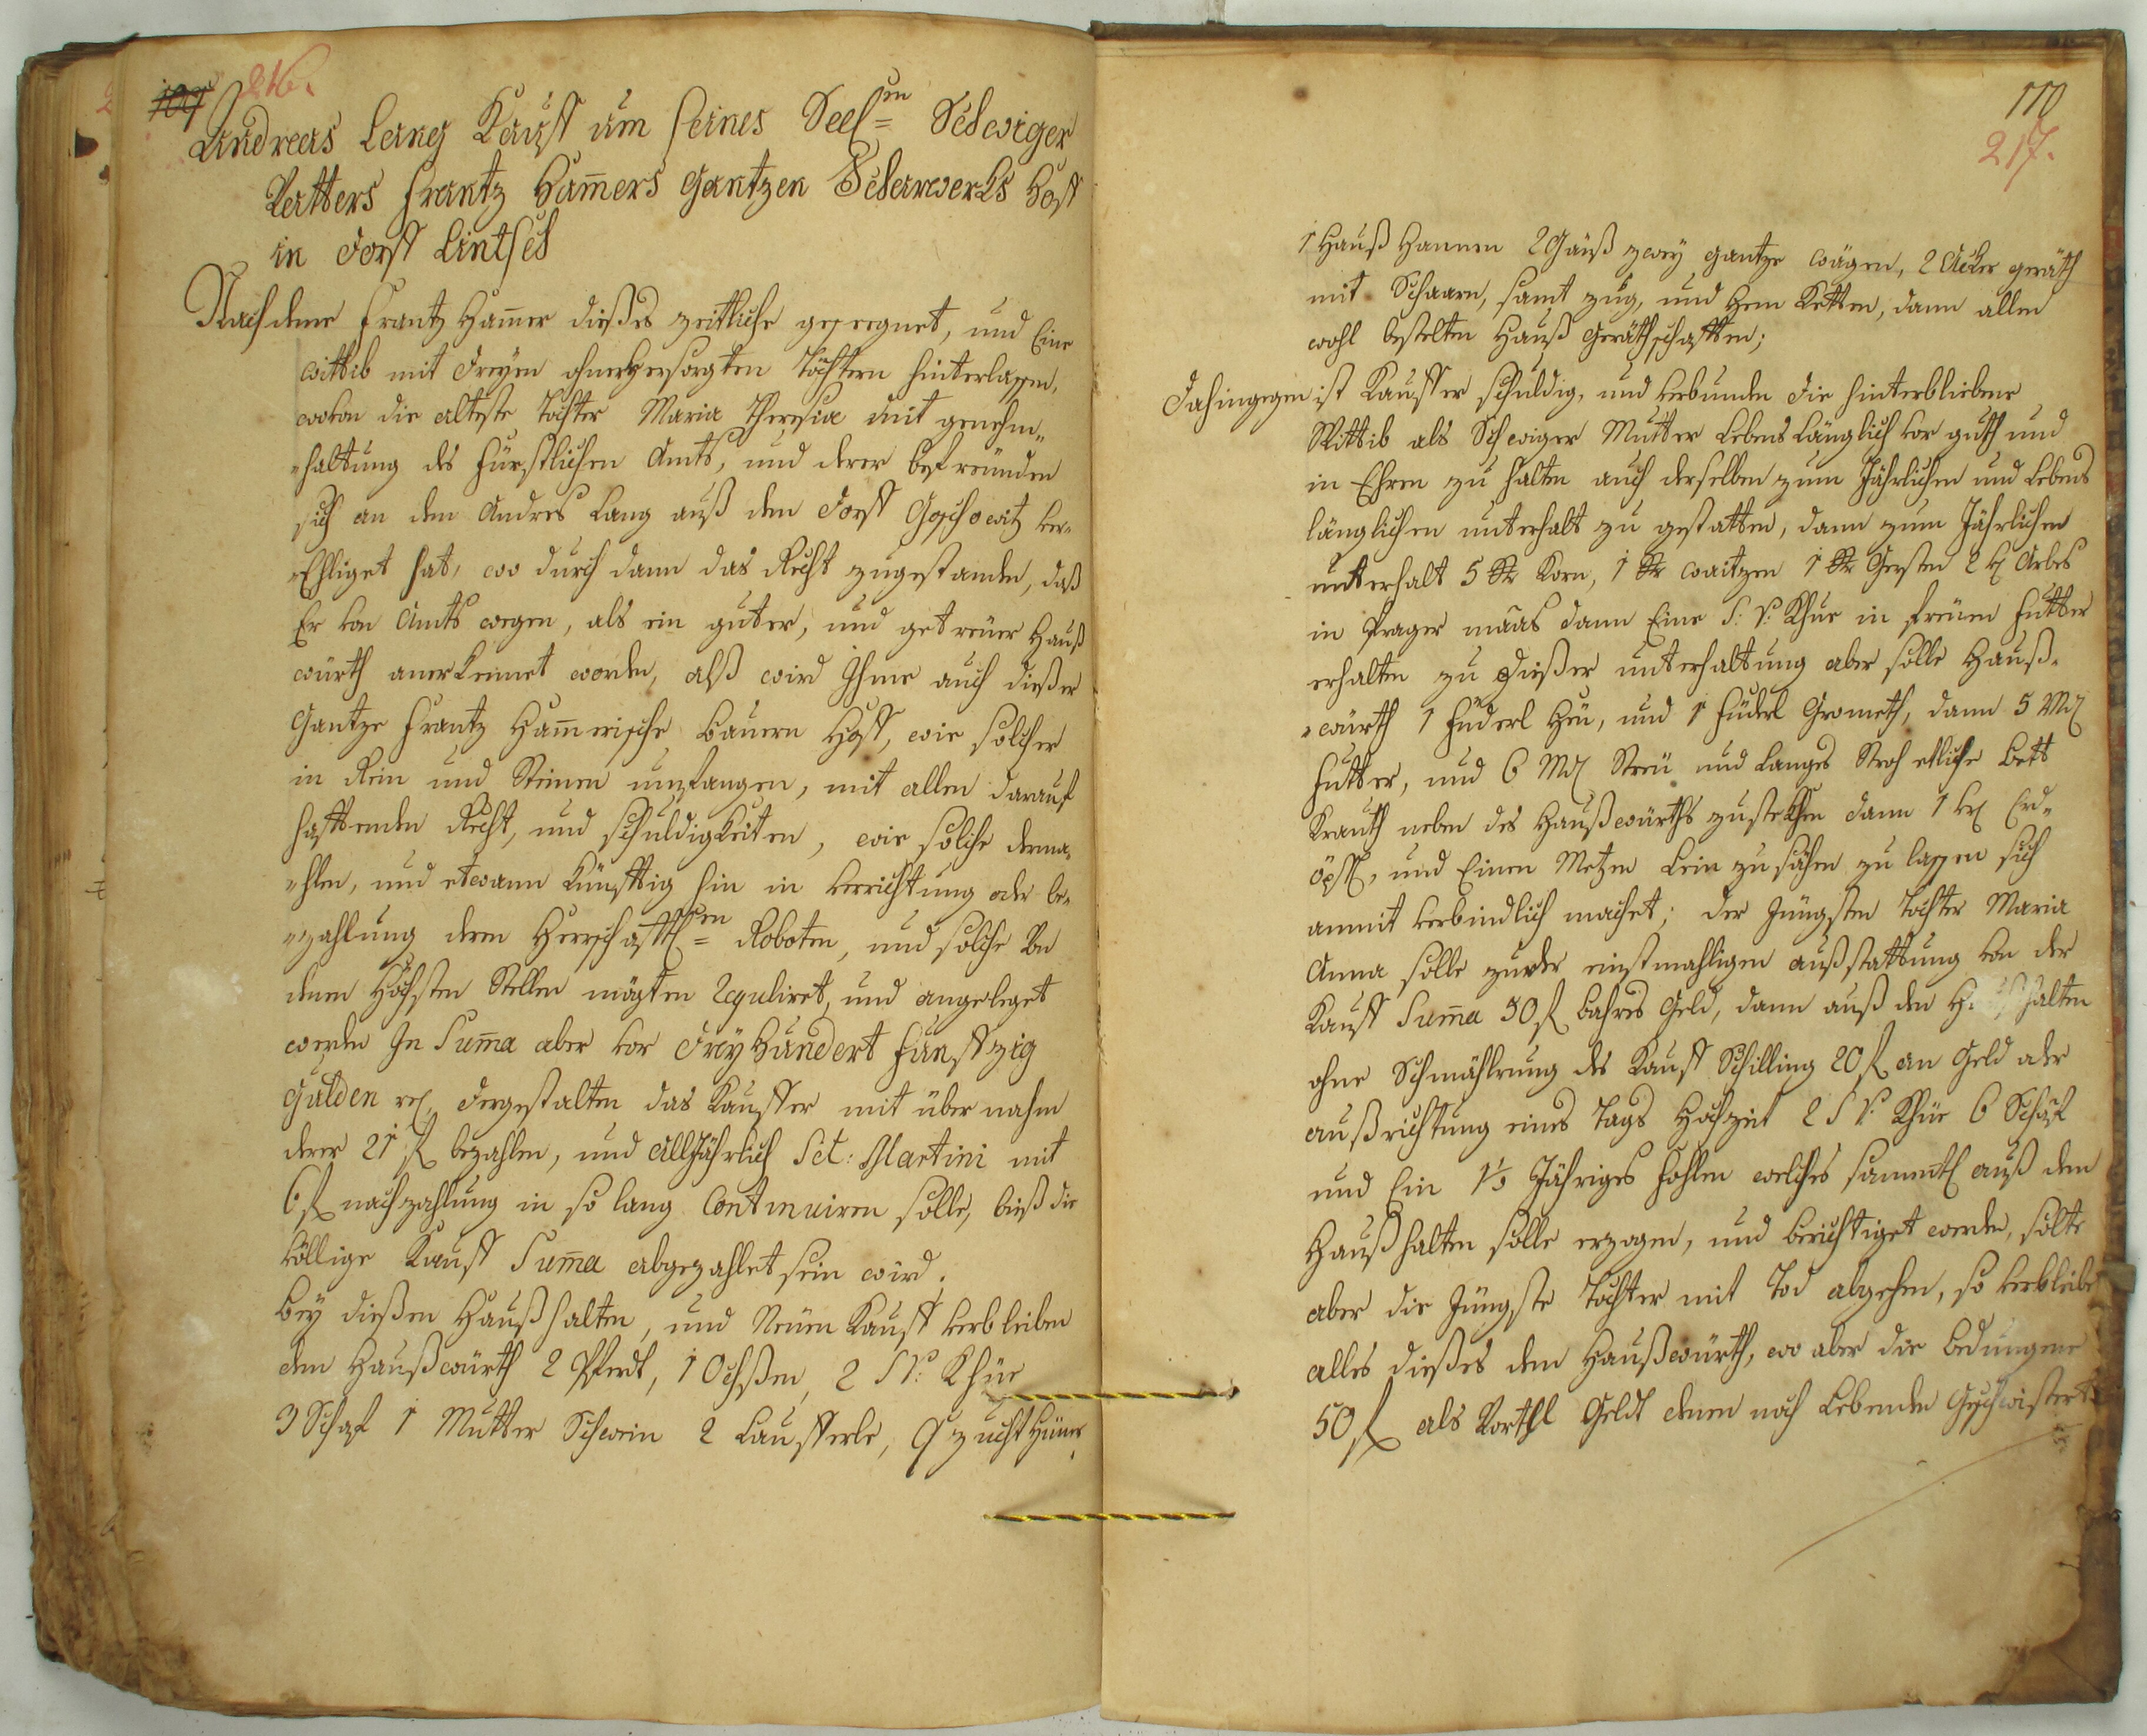 109
216.
Andreas Lang Kauff um seines Seel=en Schwiger
Vatters Frantz Ham̄ers Gantzen Scharwercks Hoff
in Dorff Lintsch
Nach deme Frantz Ham̄er dießes zeitliche gesegnet, und Eine
Wittib mit dreyen ohnversorgten Töchtern hinterlassen,
wovon die älteste Tochter Maria Theresia mit genehm„
„haltung des Fürstlichen Amts, und derer befreunden
sich an den Andres Lang auß dem Dorff ver„
„Ehliget hat, wo durch dann das Recht zugestanden, daß
Er von Amts wegen, als ein guter, und getreüer Hauß
würth anerkennet worden, alß wird Ihme auch dießer
Gantze Frantz Ham̄erische Bauern Hoff, wie solcher
in Rein und Steinen umfangen, mit allen darauf
hafftenden Recht, und schuldigkeiten, wie solche derma„
„hlen, und etwann künfftig hin in verrichtung oder be„
„zahlung deren Herrschafftl=en Roboten, und solche von
denen Höchsten Stellen mögten Reguliret, und angeleget
werden In Sum̄a aber vor Drey Hundert Funffzig
Gulden rx, dergestalten das Kauffer mit über nahm
derer 21 fl bezahlen, und Alljährlich Sct: Martini mit
6 fl nachzahlung in so lang Continuiren solle, bieß die
völlige Kauff Sum̄a abgezahlet sein wird.
Bey dießen Haußhalten, und Neüen Kauff verbleiben
dem Haußwürth 2 Pferdt, 1 Ochßen, 2 S.V: Khüe
3 Schaf 1 Mutter Schwein 2 Laufferle, 9 zucht Hüner,
110
217.
1 Hauß Hannen 2 Gäiß zwey gantze wägen, 2 Acker geräth
mit Schaaren, samt zug, und Hem Ketten, dann allen
wohl bestelten Hauß Geräthschafften;
Dahingegen ist Kauffer schuldig, und verbunden die hinterbliebene
Wittib als Schwiger Mutter Lebens Länglich vor guth und
in Ehren zu halten auch derselben zum Jährlichen und Lebens
länglichen unterhalt zu gestatten, dann zum Jährlichen
unterhalt 5 Str Korn, 1 Str waitzen 1 Str Gersten 2 Arbes
in Prager maas dann Eine S: V: Khue in freüen Futter
erhalten zu dießer unterhaltung aber solle Hauß„
„würth 1 Füderl Heu, und 1 Füderl Grometh, dann 5 Ml
Futter, und 6 Ml Streü und Langes Stroh etliche Bett
Krauth neben des Haußwürths zustekhen dann 1 Erd„
öpfl, und Einen Metzen Lein zu sähen zu lassen sich
anmit verbindlich machet; der Jüngsten Tochter Maria
Anna solle zu der einstmahligen außstattung von der
Kauff Sum̄a 50 fl bahres Geld, dann auß den Haußhalten
ohne Schmählerung des Kauff Schilling 20 fl an Geld oder
außrichtung eines Tags Hochzeit 2 S V: Khüe 6 Schaf
und Ein 1½ Jähriges Fohlen welches sammtl auß dem
Haußhalten solle erzogen, und berichtiget werden, solte
aber die Jüngste Tochter mit Tod abgehen, so verbleibe
alles dießes dem Haußwürth, wo aber die bedungene
50 fl als Vorthl Geldt denen noch Lebenden Geschwistert